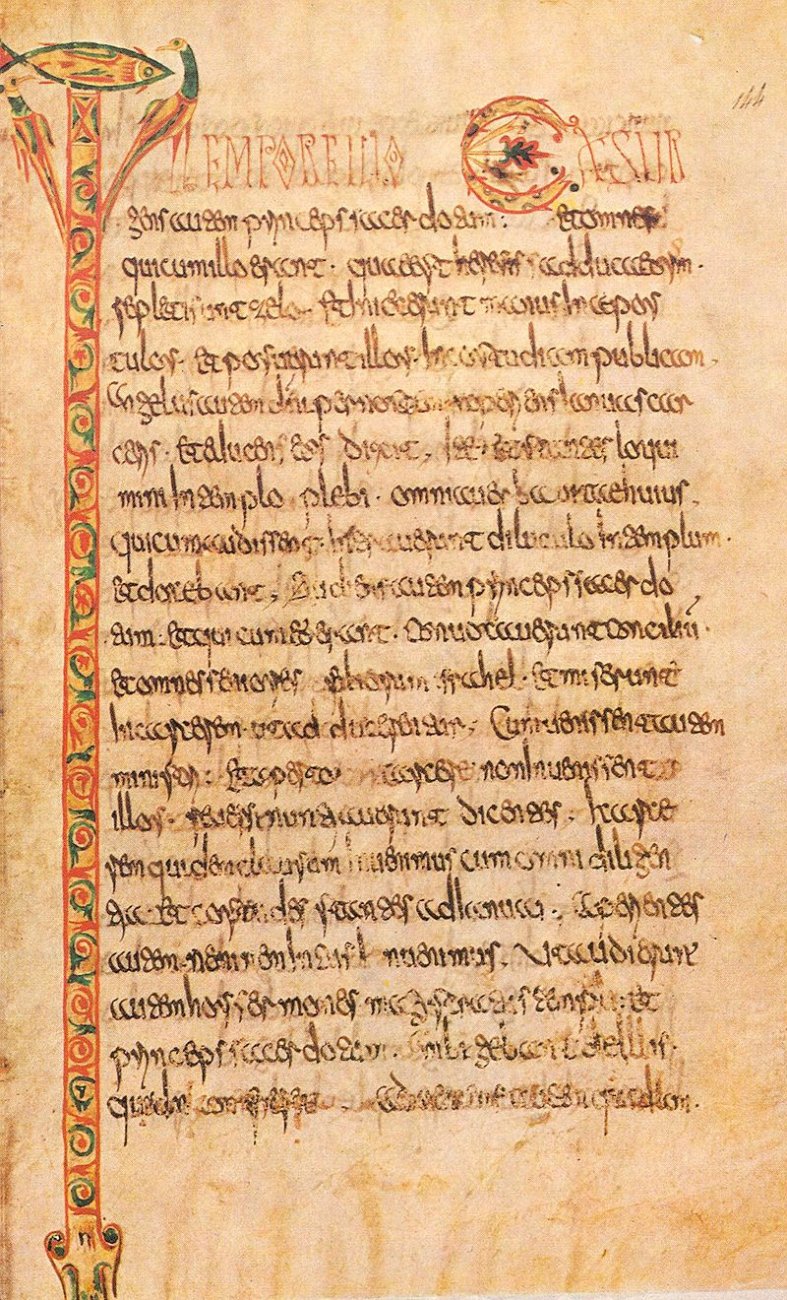 144
IN TEMPORE ILLO EXSUR
gens autem princeps sacerdotum. et omnes
qui cum illo erant. que est heresis adducaeorum.
repleti sunt zelo. et iniecerunt manus in apos
tulos. et posuerunt illos. in custudiam publicam.
Angelus autem dni per noctem aperiens ianuas car
ceris. et educens eos dixit. Ite et stantes loqui
mini in templo plebi. omnia verba vitae huius.
qui cum audissent. intraverunt diluculo in templum.
et docebant. autem princeps sacerdo
tum. et qui cum eo erant. convocaverunt conciliū.
et omnes seniores filiorum israhel. et miserunt
in carcerem ut adducerentur. Cum venissent autem
ministri. et aperto carcere non invenissent
illos. reversi nuntiaverunt dicentes. carce
rem quidem clausum invenimus cum omni diligen
tia. et custodes stantes ad ianua. Aperientes
autem neminem intus invenimus. Ut audierunt
autem hos sermones magistratus templi. et
princeps sacerdotum. ambigebant de illis.
quidnam fieret. autem quidam.